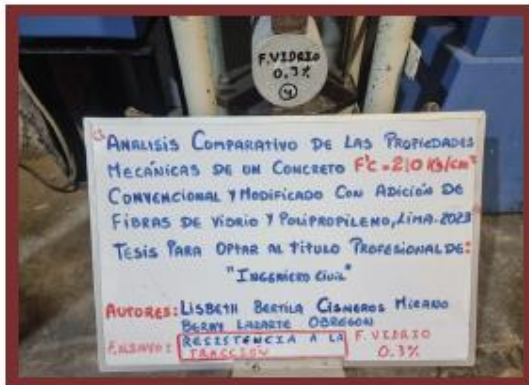 F.VIDRIO
0.3%
4
ANALISIS COMPARATIVO DE LAS PROPIEDADES
MECÁNICAS DE UN CONCRETO F'C=210 KG/CM²
CONVENCIONAL Y MODIFICADO CON ADICIÓN DE
FIBRAS DE VIDRIO Y POLIPROPILENO, LIMA-2023
TESIS PARA OPTAR AL TÍTULO PROFESIONAL DE:
"INGENIERO CIVIL"
AUTORES: LISBETH BERTILA CISNEROS
BERNY LAZARTE OBREGON
ENSAYO: RESISTENCIA A LA F. VIDRIO
TRACCIÓN 0.3%